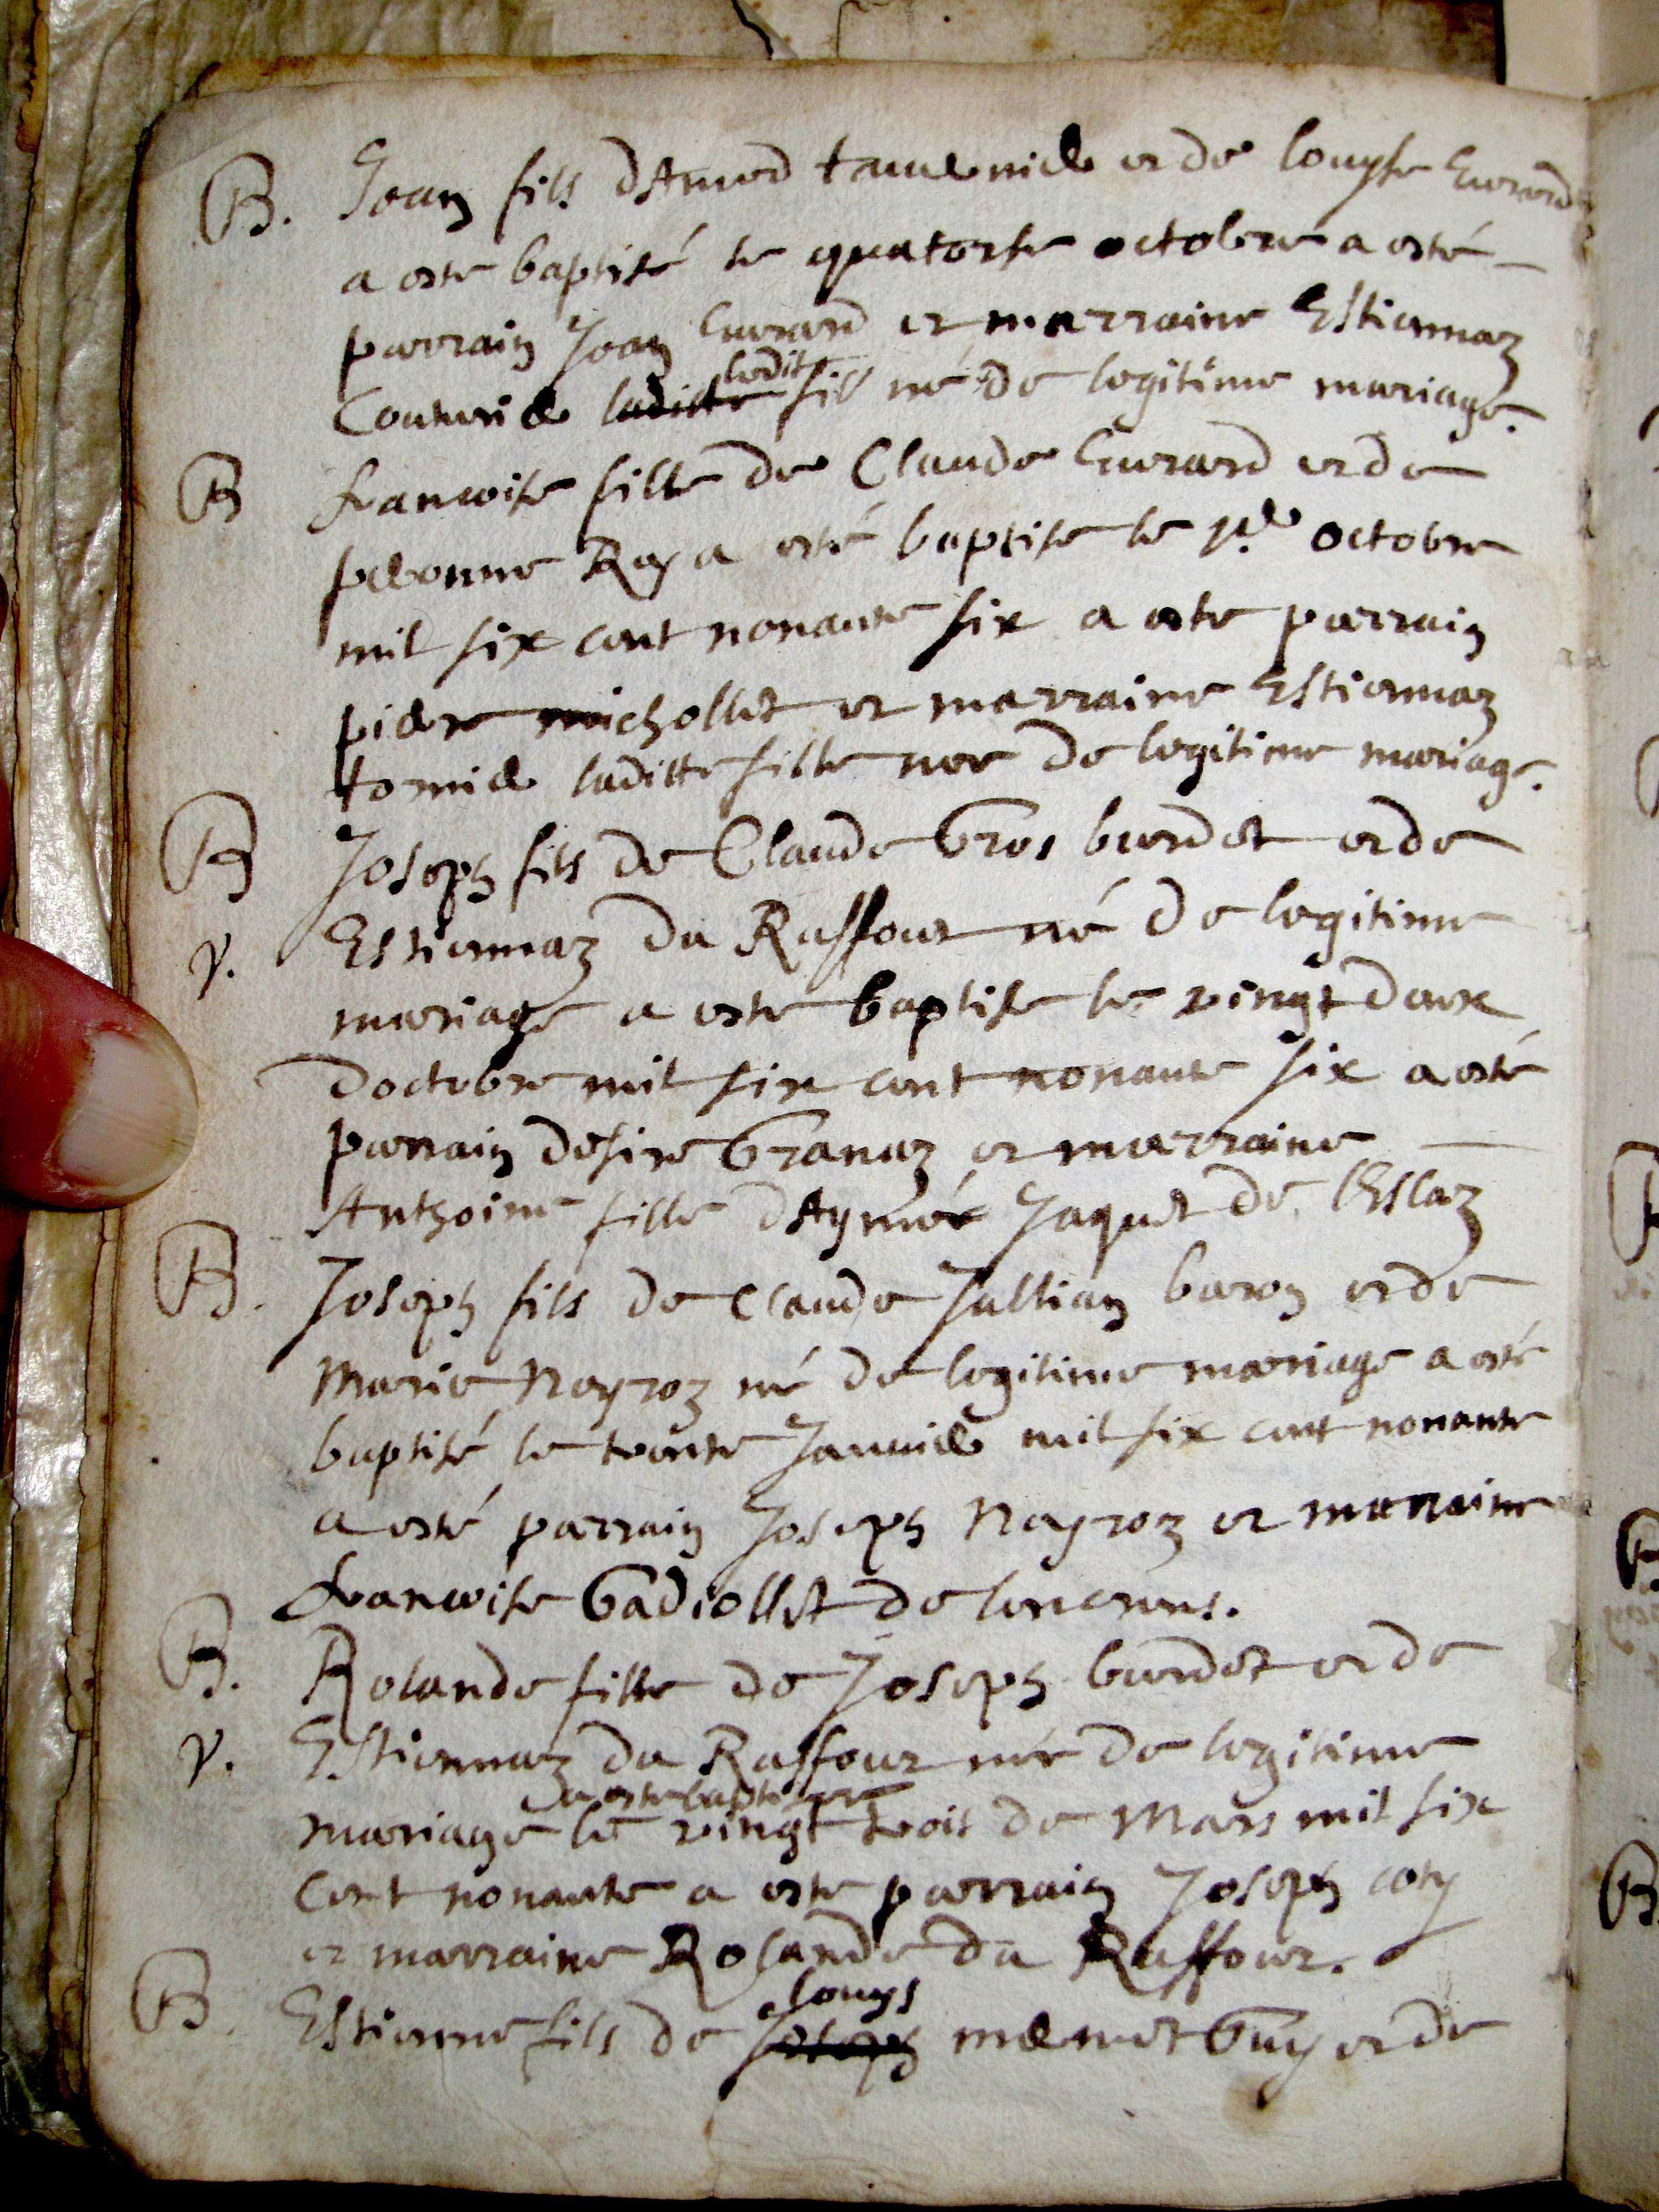 B. Jean fils dAmed tavernier et de louyse Evrard
a este baptisé le quatorse octobre a esté
parrain Jean Evrard et marraine Estiennaz
Couturier laditte ledit fils né de legitime mariage.
B francoise fille de Claude Evrard et de
pernne Rey a esté baptise le octobre
mil six cent nonante six a este parrain
pierre michollet et marraine Estiennaz
tornier laditte fille nee de legitime mariage.
B Joseph fils de Claude Gros burdet et de
v. Estiennaz du Raffour né de legitime
mariage a este baptise le vingt deux
doctobre mil six cent nonante six a esté
parrain desire Granaz et marraine
Anthoine fille dAymé Jaquet de lEslaz
B. Joseph fils de Claude Jullian baron et de
Marie Neyroz né de legitime mariage a esté
baptisé le trente Januier mil six cent nonante
a esté parrain Joseph Neyroz et marraine
francoise Gadiollet de
B. Rolande fille de Joseph burdet et de
v. Estiennaz du Raffour née de legitime
a este baptisee
mariage le vingt trois de Mars mil six
cent nonante a este parrain Joseph coty
et marraine Rolande du Raffour.
louys
B. Estienne fils de Joseph mermet Guy et de